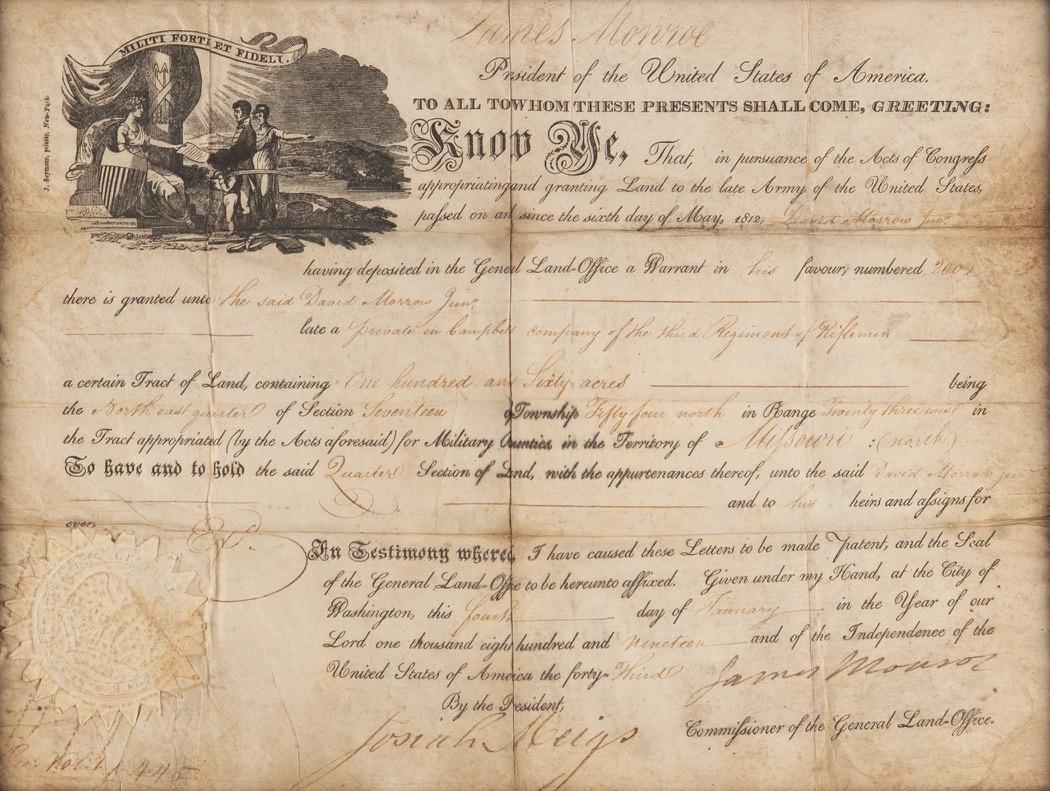 MILITI FORTI ET FIDELI.
J. Seymour, printer, New-York.
James Monroe
President of the United States of America.
TO ALL TO WHOM THESE PRESENTS SHALL COME, GREETING:
Know Ye, That, in pursuance of the Acts of Congress
appropriating and granting Land to the late Army of the United States,
passed on an since the sixth day of May, 1812, David Morrow Junr.
having deposited in the General Land-Office a Warrant in his favour, numbered
there is granted unto the said David Morrow Junr.
late a private in Campbels company of the third Regiment of Riflemen
a certain Tract of Land, containing One hundred and Sixty acres being
the North east quarter of Section Seventeen of Township Fifty four north in Range Twenty three west in
the Tract appropriated (by the Acts aforesaid) for Military Bounties, in the Territory of Missouri (north)
To have and to hold the said Quarter Section of Land, with the appurtenances thereof, unto the said David Morrow jun
and to his heirs and assigns for
ever,
In Testimony whereof, I have caused these Letters to be made Patent, and the Seal
of the General Land-Office to be hereunto affixed. Given under my Hand, at the City of
Washington, this fourth day of January in the Year of our
Lord one thousand eight hundred and nineteen and of the Independence of the
United States of America the forty-Third
James Monroe
By the President,
Josiah Meigs Commissioner of the General Land-Office.